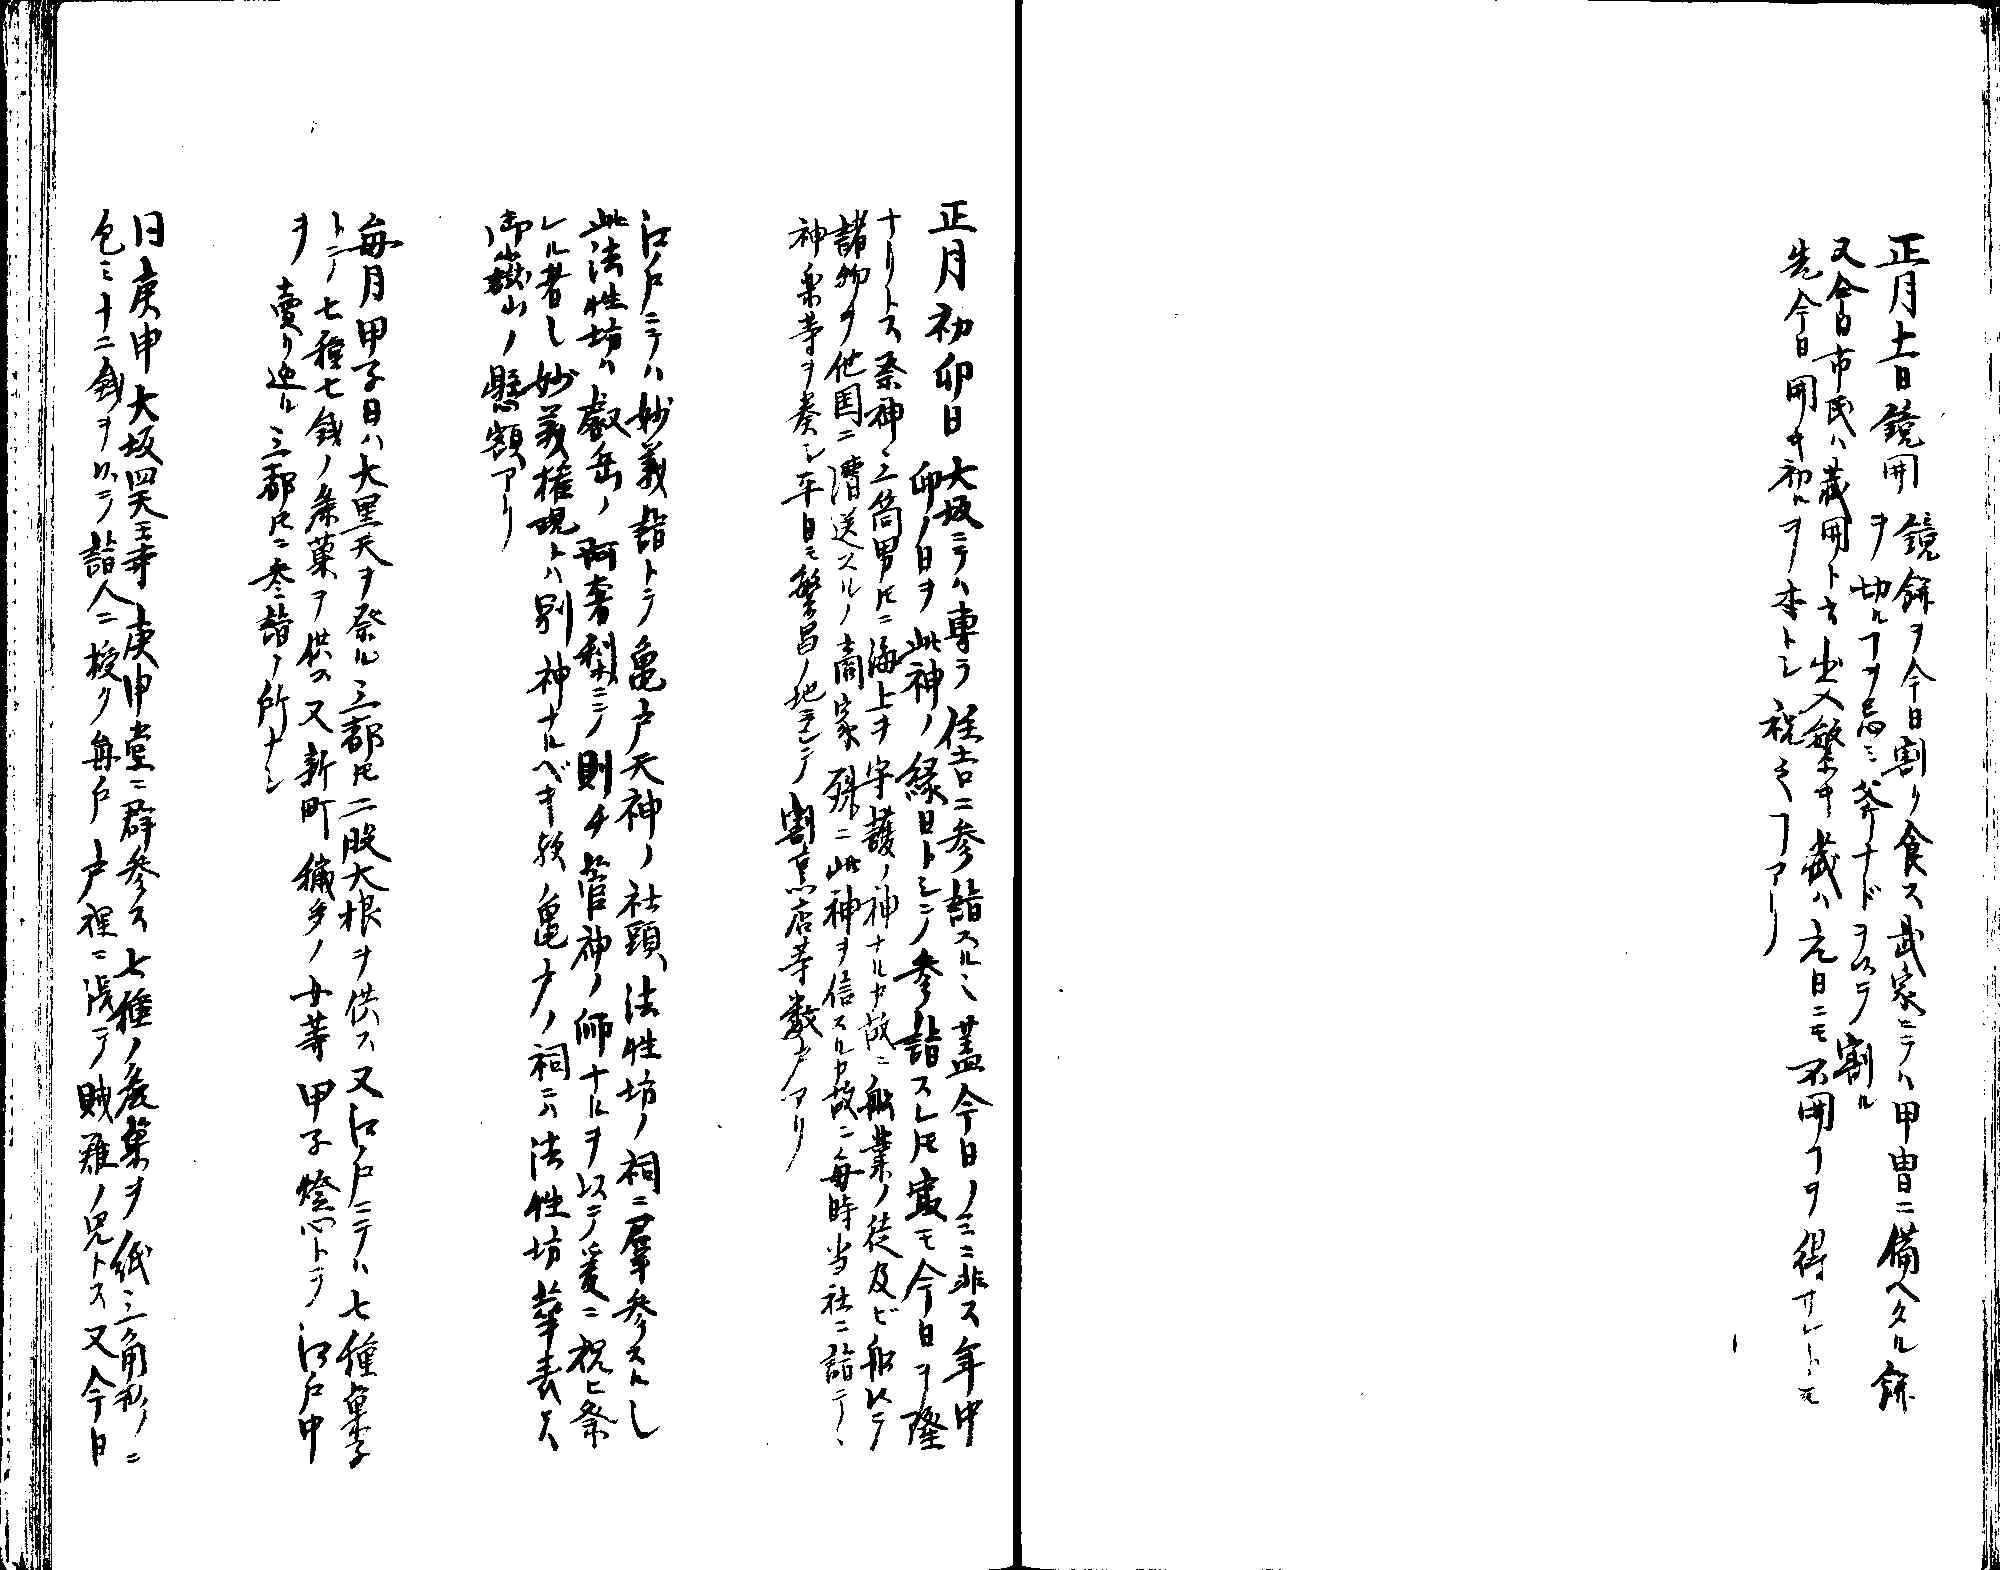 正月十一日鏡開 鏡餅ヲ今日割リ食ス武家ニテハ甲冑ニ備ヘタル餅
ヲ切ルヿヲ忌ミ斧ナドヲ以テ割ル
又今日市民ハ蔵開ト云出入繁キ蔵ハ元日ニモ不開ヿヲ得ザレトモ
先今日開キ初ルヲ本トシ祝之ヿアリ
正月初卯日 大坂ニテハ専ラ住吉ニ参詣スル也蓋今日ノミニ非ス年中
卯ノ日ヲ此神ノ縁日トシテ参詣スレ𪜈寔モ今日ヲ隆
ナリトス祭神ハ三筒男𪜈ニ海上ヲ守護ノ神ナルカ故ニ船業ノ徒及ビ船以テ
諸物ヲ他国ニ漕送スルノ商家殊ニ此神ヲ信スルカ故ニ毎時当社ニ詣テヽ
神楽等ヲ奏シ平日モ繁昌ノ地ニシテ割烹店等数戸アリ
江戸ニテハ妙義詣トテ亀戸天神ノ社頭法性坊ノ祠ニ羣参スル也
此法性坊ハ叡岳ノ阿奢梨ニテ則チ菅神ノ師ナルヲ以テ爰ニ祝ヒ祭
レル者也妙義権現トハ別神ナルベキ歟亀戸ノ祠ニハ法性坊華表ニハ
御嶽山ノ懸額アリ
毎月甲子日ハ大黒天ヲ祭ル三都𪜈二股大根ヲ供ス又江戸ニテハ七種菓子
トテ七種七銭ノ麁菓ヲ供ス又新町穢多ノ女等甲子燈心トテ江戸中
ヲ売リ巡ル三都𪜈ニ参詣ノ所ナシ
同庚申大坂四天王寺庚申堂ニ群参ス七種ノ麁菓ヲ紙三角形ノニ
包ミ十二銭ヲ以テ詣人ニ授ク毎戸戸裡ニ張テ賊難ノ咒トス又今日